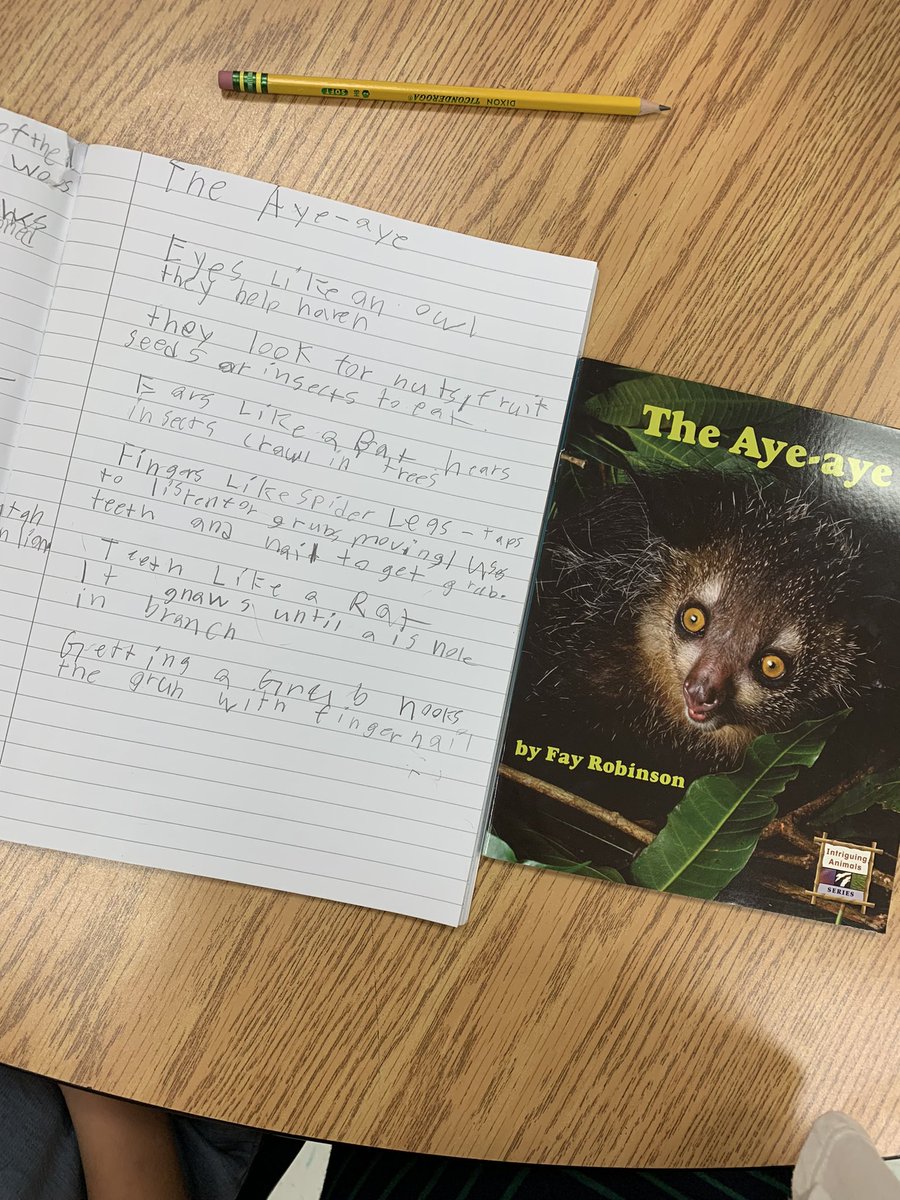 DIXON TICONDEROGA
2 SOFT
of the
The Aye-aye
Eyes Like an owl
they help
they look for nuts, fruit
seeds or insects to eat.
Ears Like a Bat hears
insects crawl in trees
Fingers Like spider Legs - taps
to listen for grubs moving/ uses
teeth and nail to get grub.
Teeth Like a Rat
It gnaws until a is hole
in branch
Getting a Grub hooks
the grub with fingernail
The Aye-aye
by Fay Robinson
Intriguing
Animals
SERIES